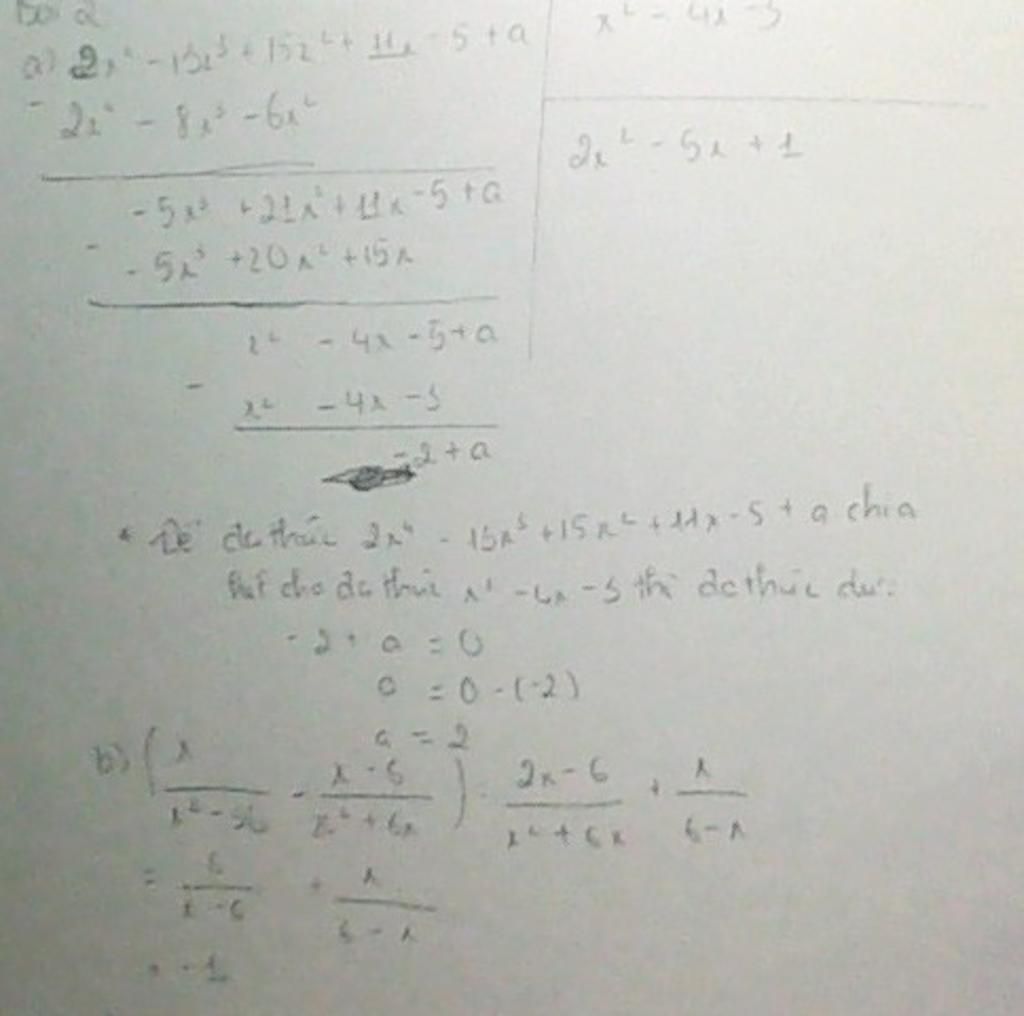 Bài 2
a) 2x⁴ - 13x³ + 15x² + 11x - 5 + a
x² - 4x - 3
- 2x⁴ - 8x³ - 6x²
2x² - 5x + 1
-5x³ + 21x² + 11x - 5 + a
- -5x³ + 20x² + 15x
x² - 4x - 5 + a
- x² - 4x - 3
-2 + a
* Để đa thức 2x⁴ - 13x³ + 15x² + 11x - 5 + a chia
hết cho đa thức x² - 4x - 3 thì đa thức dư:
-2 + a = 0
a = 0 - (-2)
a = 2
b) (x/(x² - 36) - (x - 6)/(x² + 6x)) : (2x - 6)/(x² + 6x) + x/(6 - x)
= 6/(x - 6) + x/(6 - x)
= -1